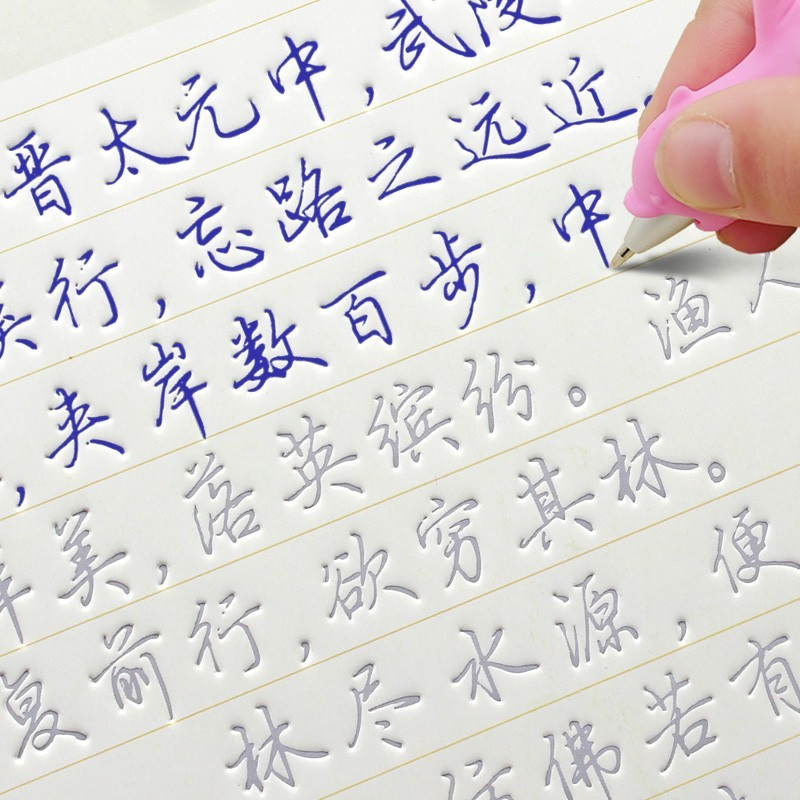 晋太元中,武陵
行,忘路之远近。
,夹岸数百步,中
美,落英缤纷。渔人
复前行,欲穷其林。
林尽水源,便
仿佛若有